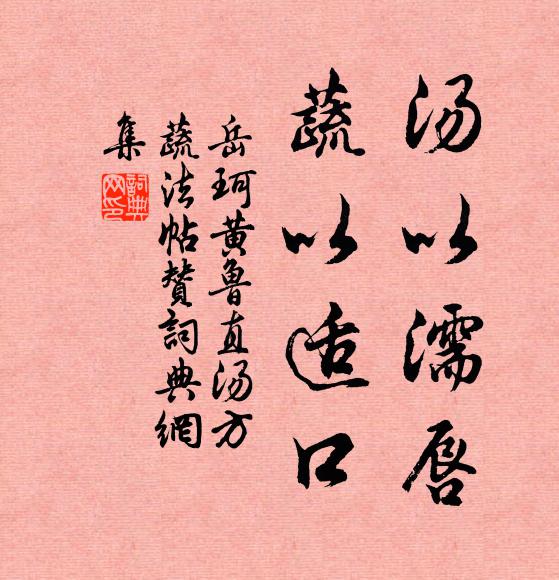 汤以濡唇
蔬以适口
岳珂黄鲁直汤方
蔬法帖赞詞典網
集
詞典网印